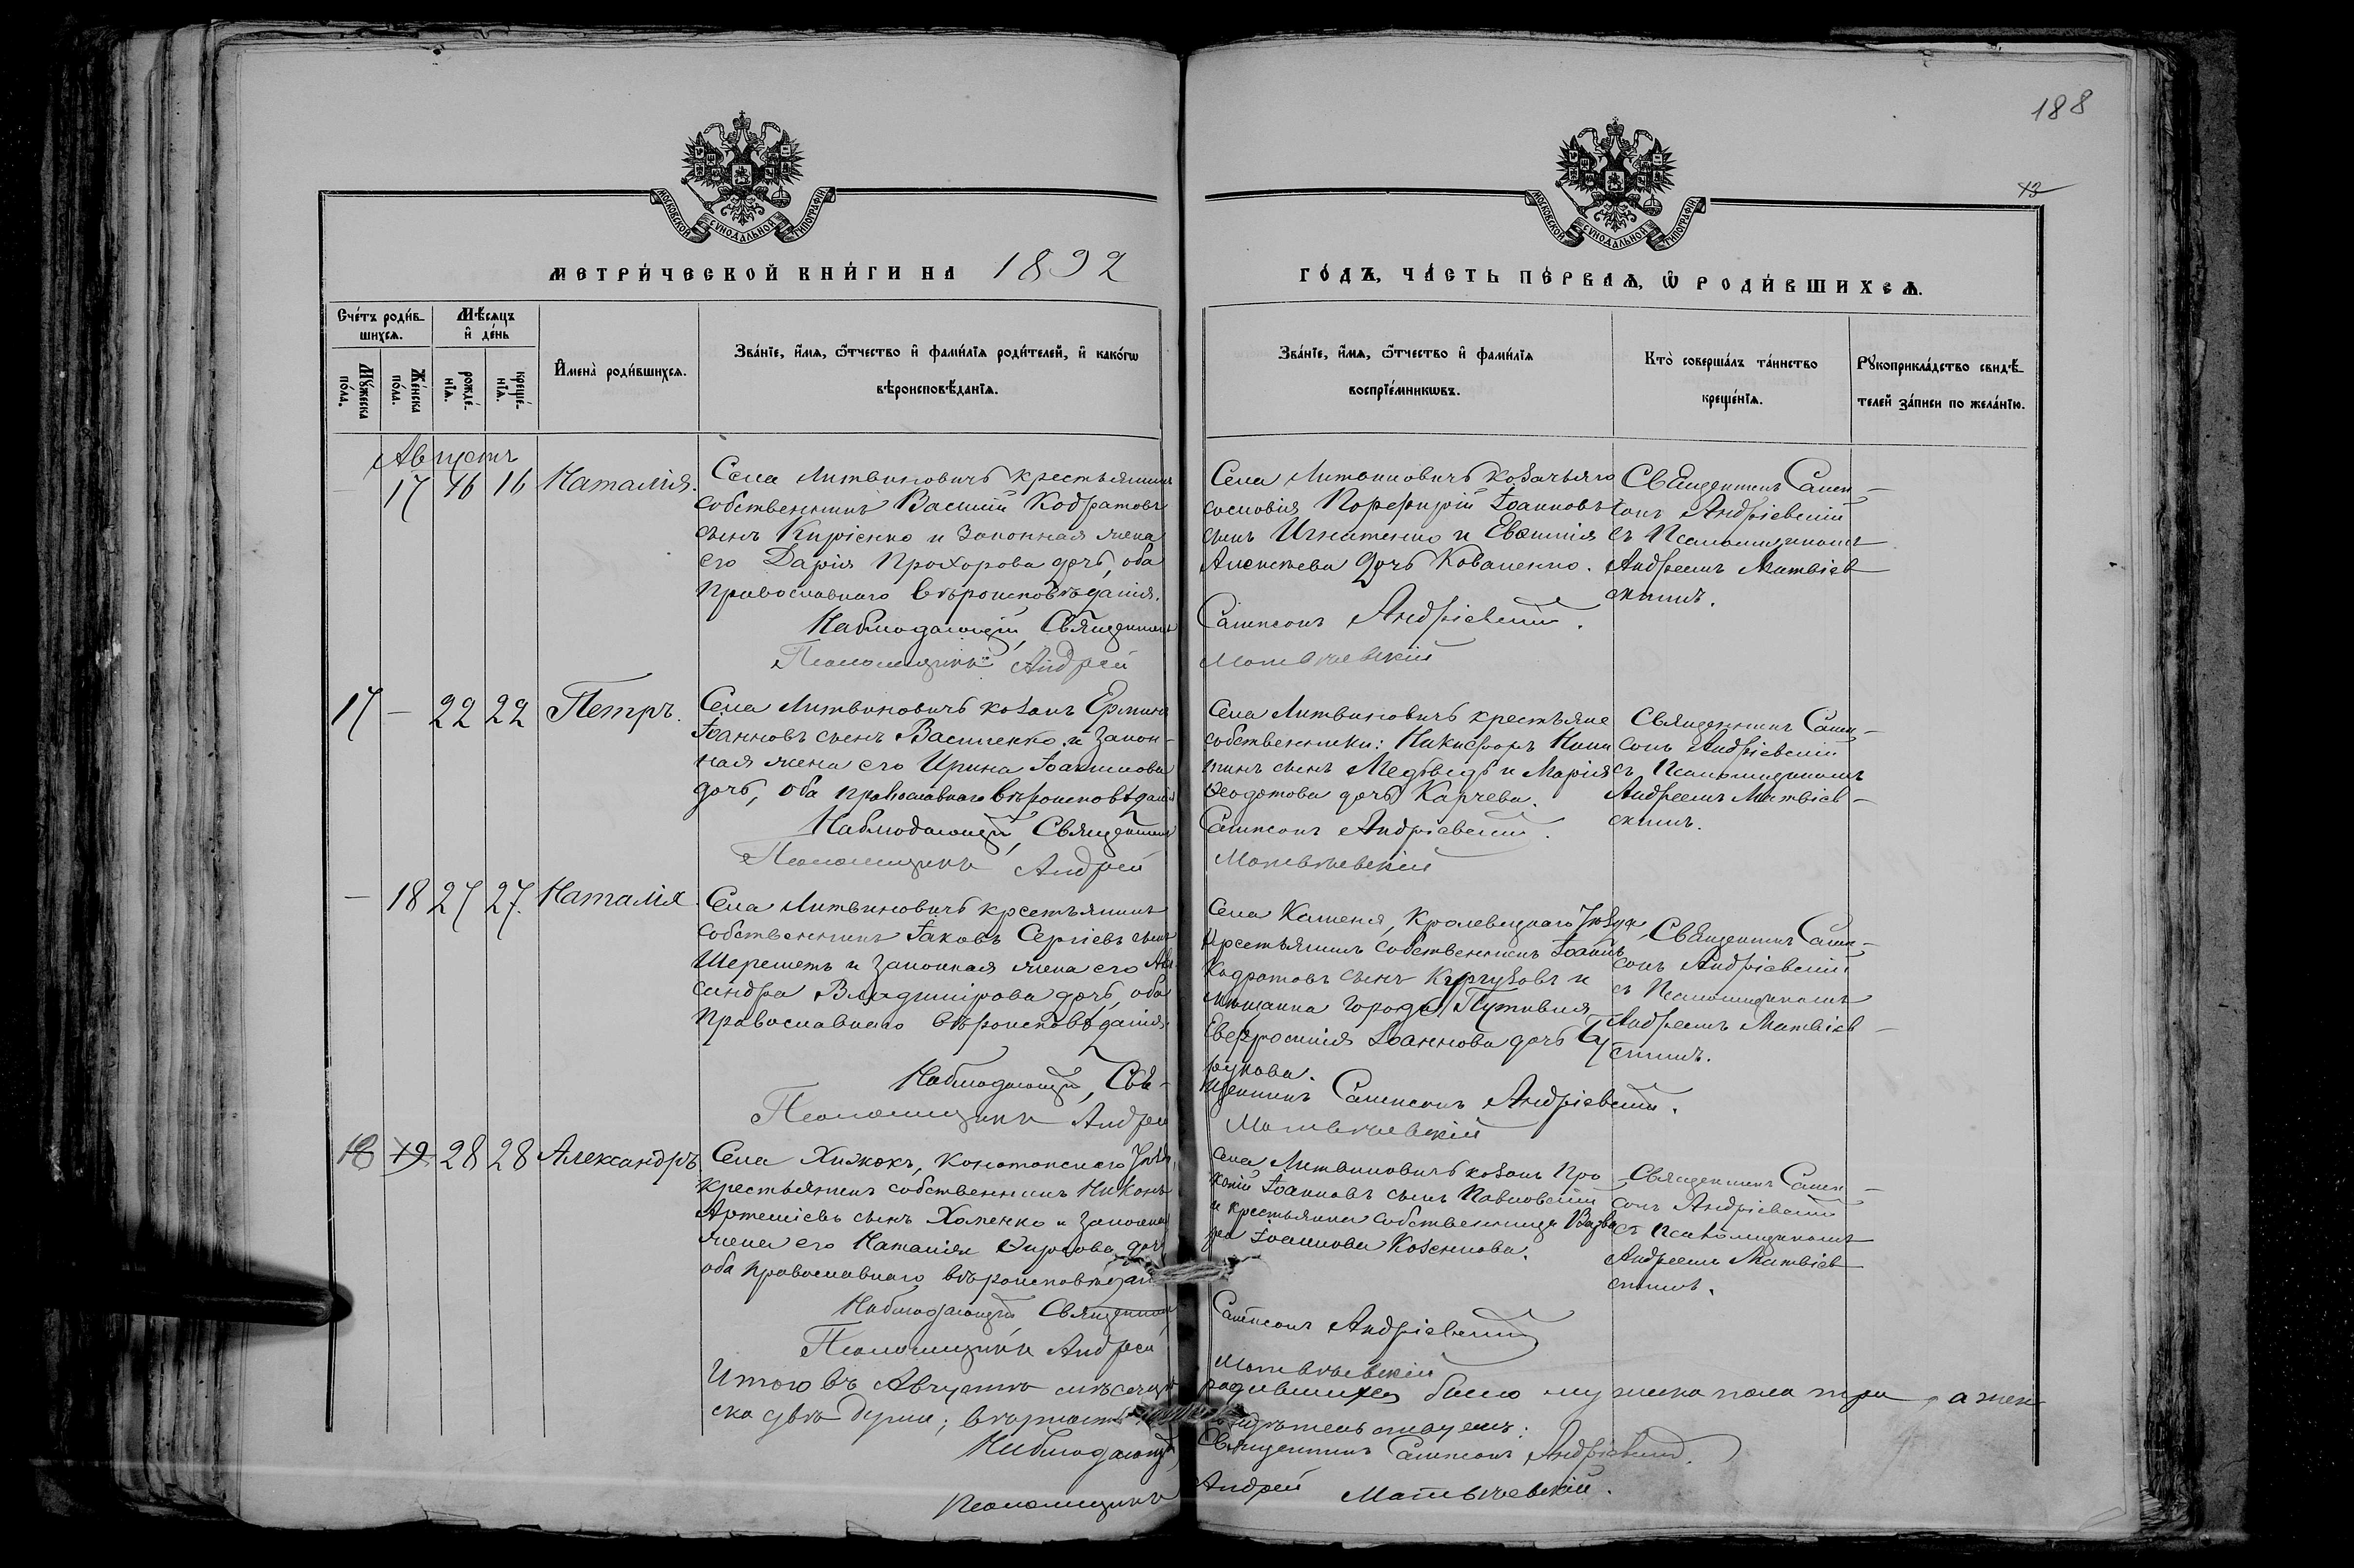 188
13
МОСКОВСКОЙ СѴНОДАЛЬНОЙ ТИПОГРАФІИ
МОСКОВСКОЙ СѴНОДАЛЬНОЙ ТИПОГРАФІИ
МЕТРИ́ЧЕСКОЙ КНИ́ГИ НА 1892
ГО́ДЪ, ЧА́СТЬ ПЕ́РВАѦ, Ѡ҆ РОДИ́ВШИХСѦ.
Сче́тъ роди́в-
шихсѧ.
Мꙋ́жеска по́ла.
Же́нска по́ла.
Мѣ́сѧцъ
и҆ де́нь
рожде́-
нїѧ.
креще́-
нїѧ.
И҆мена̀ роди́вшихсѧ.
Зва́нїе, и҆́мѧ, ѻ҆́тчество и҆ фами́лїѧ роди́телей, и҆ како́гѡ
вѣроисповѣ́данїѧ.
Зва́нїе, и҆́мѧ, ѻ҆́тчество и҆ фами́лїѧ
воспрїе́мникѡвъ.
Кто̀ соверша́лъ та́инство
креще́нїѧ.
Рꙋкоприкла́дство свидѣ́-
телей за́писи по жела́нїю.
Августъ
17 16 16 Наталія.
Села Литвиновичъ крестьянинъ
собственникъ Василій Кодратовъ
сынъ Киріенко и законная жена
его Дарія Прохорова дочь, оба
православнаго вѣроисповѣданія.
Наблюдающій, Священникъ
Псаломщикъ Андрей
Села Литвиновичъ козачьяго
сословія Порфирій Іоанновъ
сынъ Игнатенко и Евфимія
Алексѣева дочь Коваленко.
Сампсонъ Андріевскій.
Матвѣевскій
Священникъ Самп-
сонъ Андріевскій
съ Псаломщикомъ
Андреемъ Матвіев-
скимъ.
17 — 22 22 Петръ.
Села Литвиновичъ козакъ
Іоанновъ сынъ Василенко и закон-
ная жена его Ирина Іоакимова
дочь, оба православнаго вѣроисповѣданія
Наблюдающій, Священникъ
Псаломщикъ Андрей
Села Литвиновичъ крестьяне
собственники: Никифоръ Ники
тинъ сынъ Медвѣдь и Марія
Ѳеодотова дочь Карчева.
Сампсонъ Андріевскій.
Матвѣевскій
Священникъ Самп-
сонъ Андріевскій
съ Псаломщикомъ
Андреемъ Матвіев-
скимъ.
— 18 27 27. Наталія.
Села Литвиновичъ крестьянинъ
собственникъ Іаковъ Сергіевъ сынъ
Шереметъ и законная жена его
сандра Владимірова дочь, оба
православнаго вѣроисповѣданія.
Наблюдающій, Свя-
Псаломщикъ Андрей
Села Каменя, Кролевецкаго Уѣзда,
Крестьянинъ собственникъ Іоаннъ
Кодратовъ сынъ и
Мѣщанка города Путивля
Евфросинія Іоаннова дочь
щенникъ Сампсонъ Андріевскій.
Матвѣевскій
Священникъ Самп-
сонъ Андріевскій
съ Псаломщикомъ
Андреемъ Матвіев-
скимъ.
18 19 28 28 Александръ.
Села Хижокъ, Конотопскаго Уѣз.
крестьянинъ собственникъ Никонъ
Артеміевъ сынъ Хоменко и законная
жена его Наталія дочь
оба православнаго вѣроисповѣдан
Наблюдающій Священникъ
Псаломщикъ Андрей
Села Литвиновичъ козакъ Про
копій Іоанновъ сынъ Павловскій
и крестьянка собственница Варва
ра Іоаннова
Сампсонъ Андріевскій
Матвѣевскій
Священникъ Самп-
сонъ Андріевскій
съ Псаломщикомъ
Андреемъ Матвіев-
скимъ.
Итого въ Августѣ мѣсяцѣ родившихся было мужска пола три, а жен-
ска двѣ души; вѣрность свидѣтельствуемъ:
Наблюдающій Священникъ Сампсонъ Андріевскій.
Псаломщикъ Андрей Матвѣевскій.